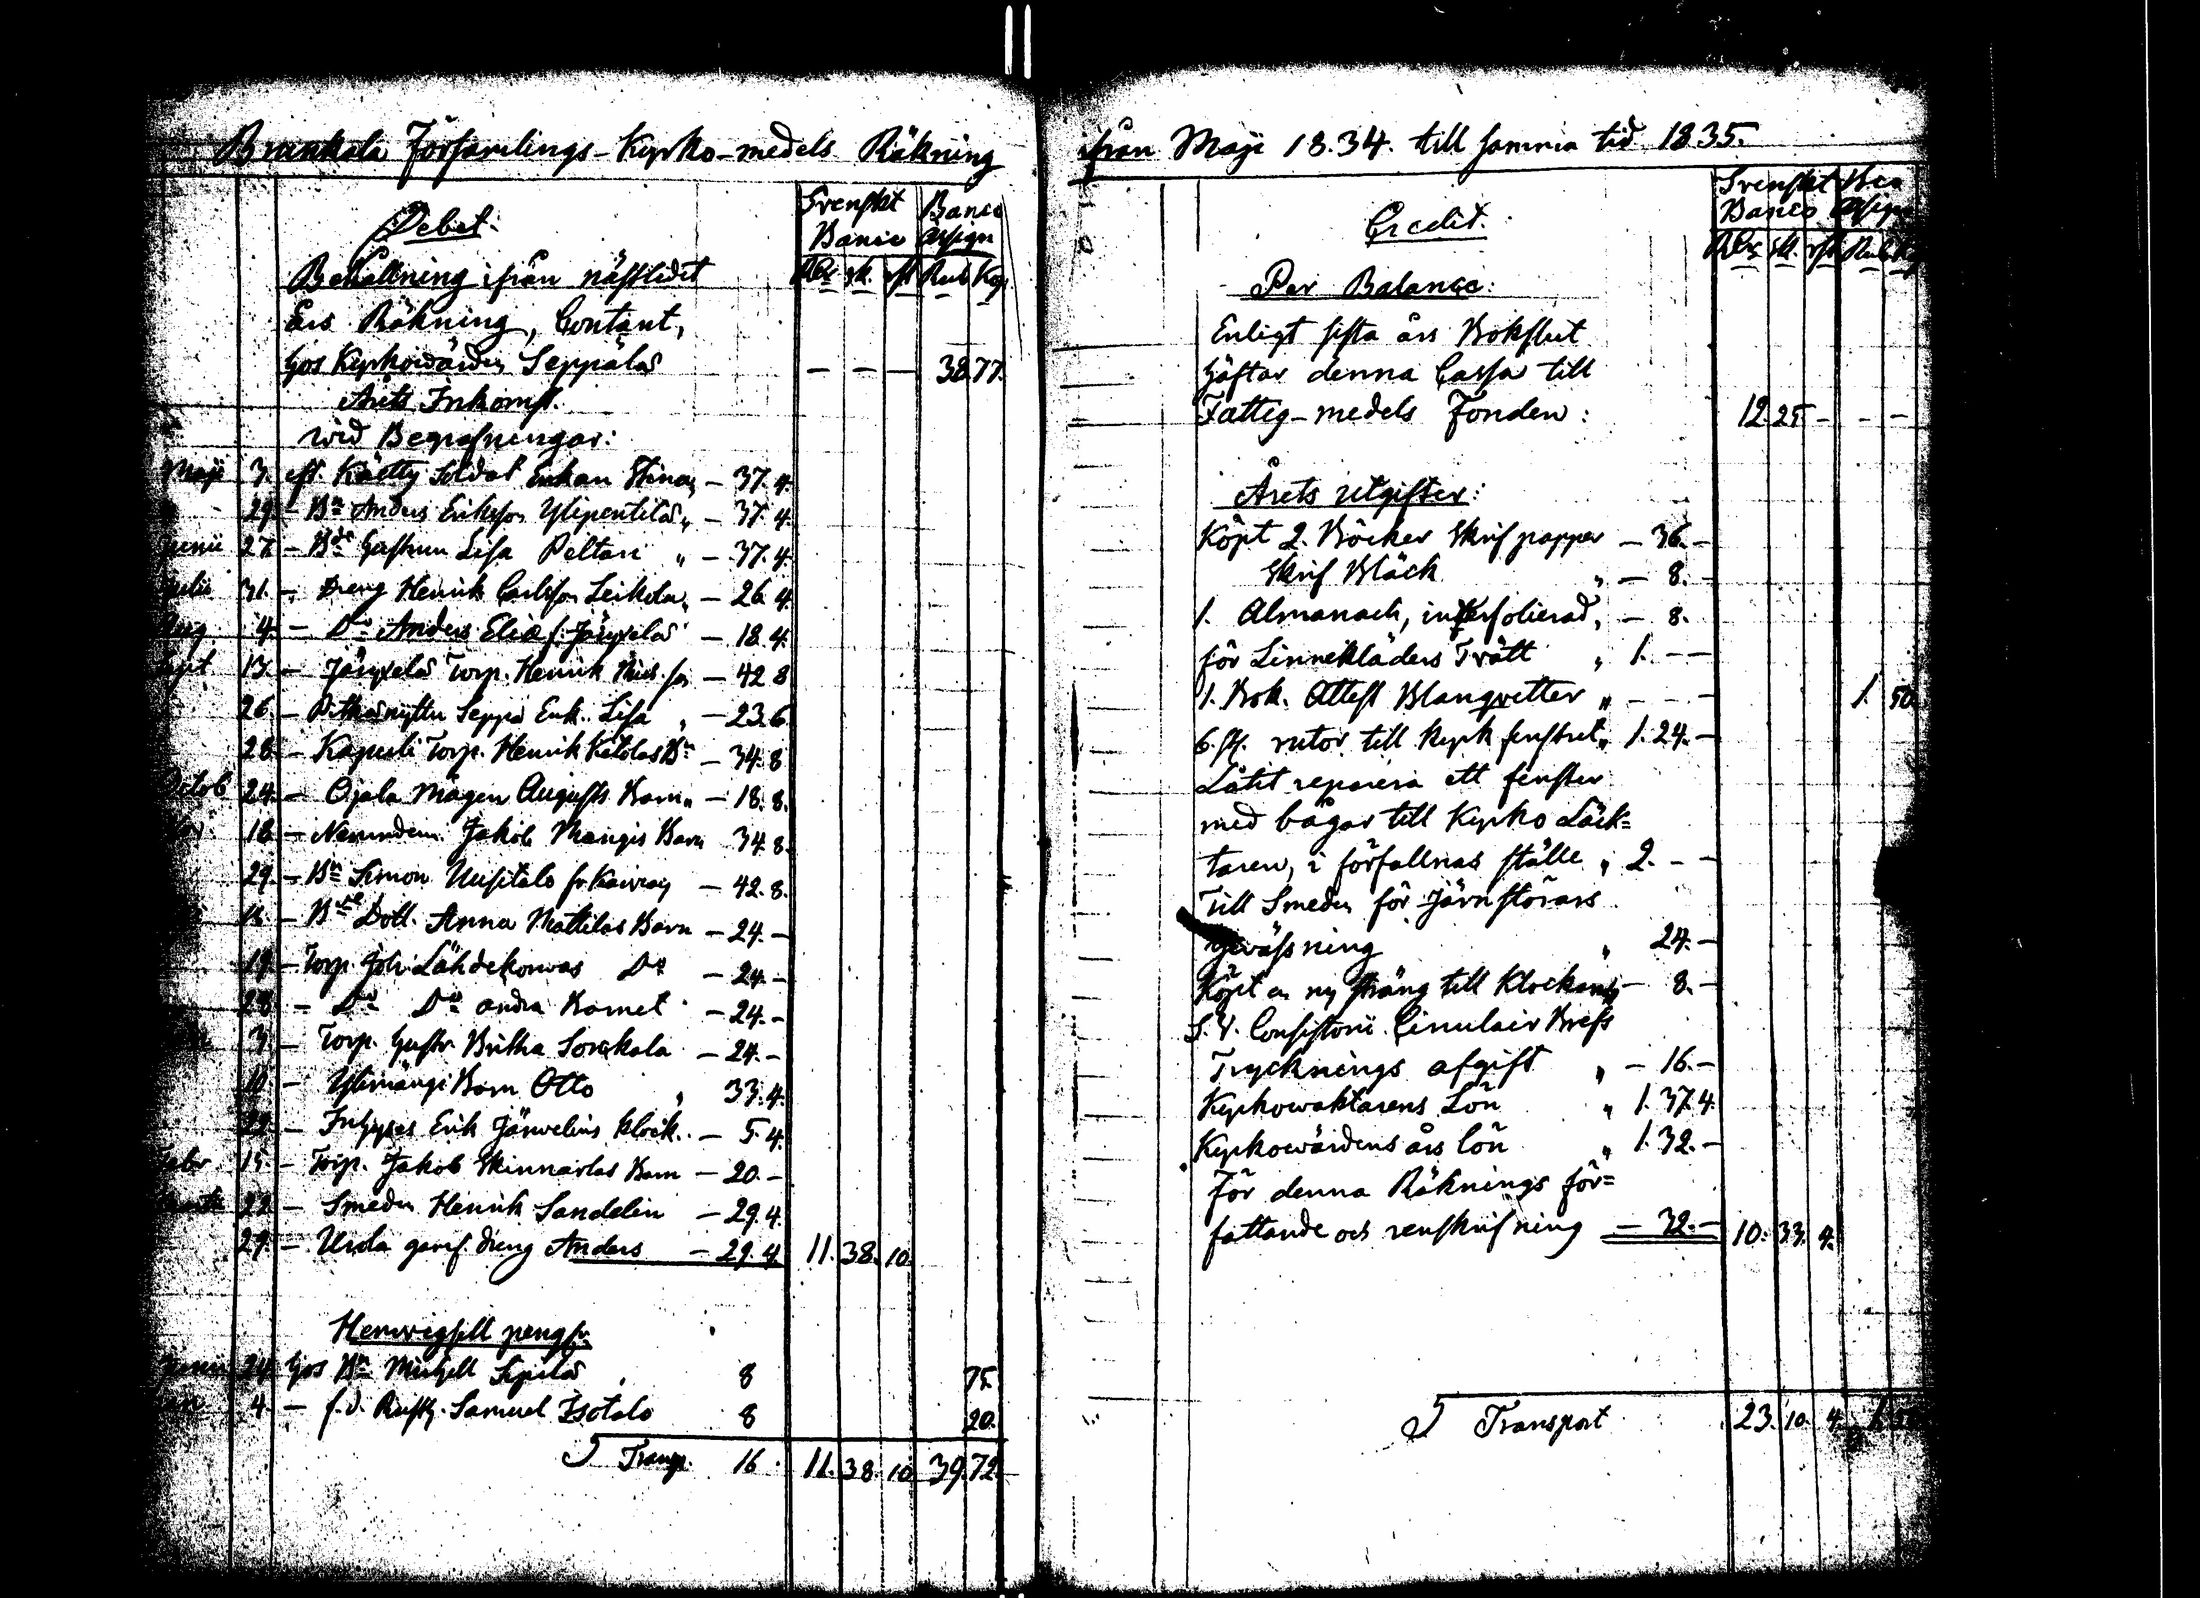 Brunkala Församlings-Kyrko-medels Räkning
Debet:
Svenskt Banco
Banco Assign
Rdr sk. rst Rub Kop
Behållning ifrån nästledet
års Räkning, Contant,
hos Kyrkowärden Seppälä — — — 38 77.
Årets Inkomst.
wid Begrafningar:
Maji 3. eft. Kärtty Soldat Enkan Stina, — 37. 4.
29. — Bn Anders Eriksson Ylipentilä „ — 37. 4.
Junii 27. — Bde Hustrun Lisa Peltari „ — 37. 4.
Julii 31. — Dreng Henrik Carlsson Leikola „ — 26. 4.
Aug. 4. — Do Anders Elias s. Järvelä — 18. 4.
Sept. 13. — Järvelä Torp. Henrik Mics. son — 42 8
26. — Seppä Enk. Lisa „ — 23. 6.
28. — Torp. Henrik Bn — 34. 8
Octob 24. — Ojala Mågen Augusts Barn „ — 18. 8.
18. — Nämndem. Jakob Mangis Barn 34 8.
29. — Bn Simon Uusitalo — 42. 8.
15. — Bde Dott. Anna Mattilas Barn — 24. —
19. — Torp. Joh. Lähdekorvas Do — 24. —
28 — Do Do andra Barnet — 24. —
3. — Torp. Hustr. Britha Sorrkala — 24. —
10 — Ylimängi Barn Otto „ 33. 4.
22. — Inhyses Erik Järvelins klock. — 5. 4.
Febr 15. — Torp. Jakob Skinnarlas Barn — 20. —
22. — Smeden Henrik Sandelin — 29. 4.
29. — Urola dreng Anders — 29. 4. 11. 38. 10.
Hemvigsell pengr.
Junii 24. hos Bn Michell Sipilä „ 8 75.
4. — f.d. Rusth. Samuel Isotalo 8 20.
Transp. 16 11. 38. 10 39. 72.
ifrån Maji 1834. till samma tid 1835.
Credit.
Svenskt Banco
Rdr sk. rst Rub
Per Balance:
Enligt sista års Bokslut
häftar denna Cassa till
Fattig-medels Fonden: 12. 25 — — —
Årets utgifter:
Köpt 2. Böcker Skrifpapper — 36. —
Skrif Bläck „ — 8. —
1. Almanach, interfolierad, — 8.
för Linnekläders Tvätt „ 1. — —
1. Bok. Attest Blanqvetter „ — — — 1. 50.
6. st. rutor till kyrk fenstret „ 1. 24. —
Låtit reparera ett fenster
med bågar till Kyrko Läck=
taren, i förfallnas ställe „ 2. — —
Till Smeden för Järnstörars
hwässning „ 24. —
Köpt en ny sträng till Klockan — 8. —
Consistorii Circulair Brefs
Trycknings afgift „ — 16. —
Kyrkowaktarens Lön „ 1. 37. 4.
Kyrkowärdens års lön „ 1. 32. —
För denna Räknings för=
fattande och renskrifning — 32. — 10. 33. 4.
Transport 23. 10. 4. 1. 50